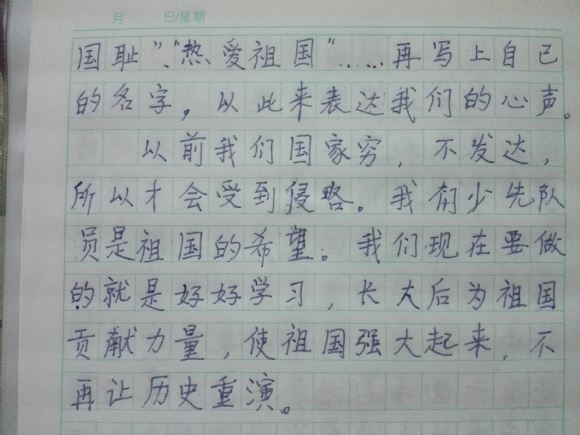 月 日/星期
国耻”、“热爱祖国”……再写上自己
的名字，以此来表达我们的心声。
以前我们国家穷，不发达，
所以才会受到侵略。我们少先队
员是祖国的希望。我们现在要做
的就是好好学习，长大后为祖国
贡献力量，使祖国强大起来，不
再让历史重演。